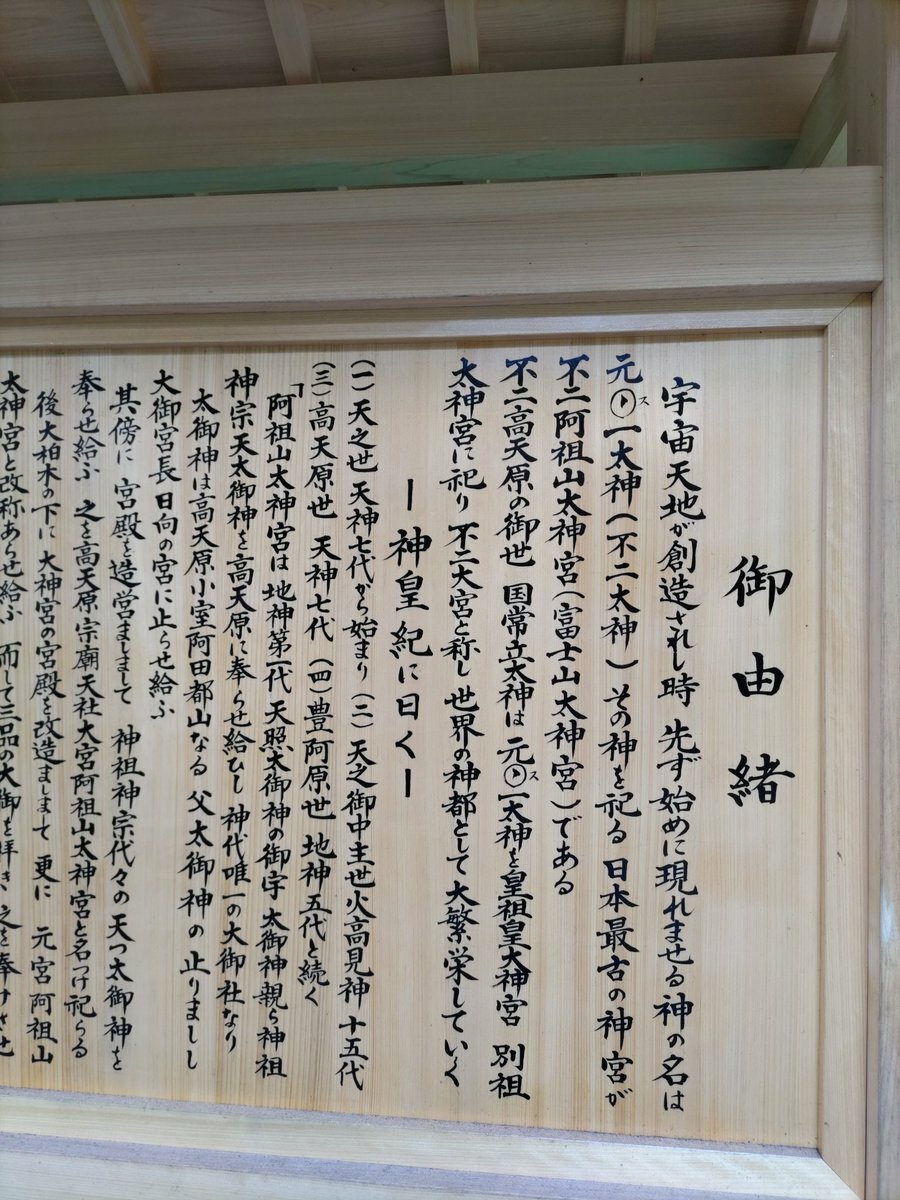 御由緒
宇宙天地が創造されし時 先ず始めに現れませる神の名は
元ス一太神(不二太神) その神を祀る 日本最古の神宮が
不二阿祖山太神宮(富士山太神宮)である
不二高天原の御世 国常立太神は 元ス一太神を皇祖皇大神宮 別祖
太神宮に祀り 不二大宮と称し 世界の神都として 大繁栄していく
ー神皇紀に曰くー
(一)天之世 天神七代から始まり(二)天之御中主世火高見神 十五代
(三)高天原世 天神七代 (四)豊阿原世 地神五代と続く
「阿祖山太神宮は 地神第一代 天照太御神の御宇 太御神親ら神祖
神宗天太御神を高天原に奉らせ給ひし 神代唯一の大御社なり
太御神は高天原小室阿田都山なる 父太御神の 止りましし
大御宮長 日向の宮に止らせ給ふ
其傍に 宮殿を造営ましまして 神祖神宗代々の 天つ太御神を
奉らせ給ふ 之を高天原宗廟天社大宮阿祖山太神宮と名つけ祀らる
後 大柏木の下に 大神宮の宮殿を改造ましまして 更に 元宮阿祖山
太神宮と改称あらせ給ふ 而して三品の大御を拝き 之を奉けさせ